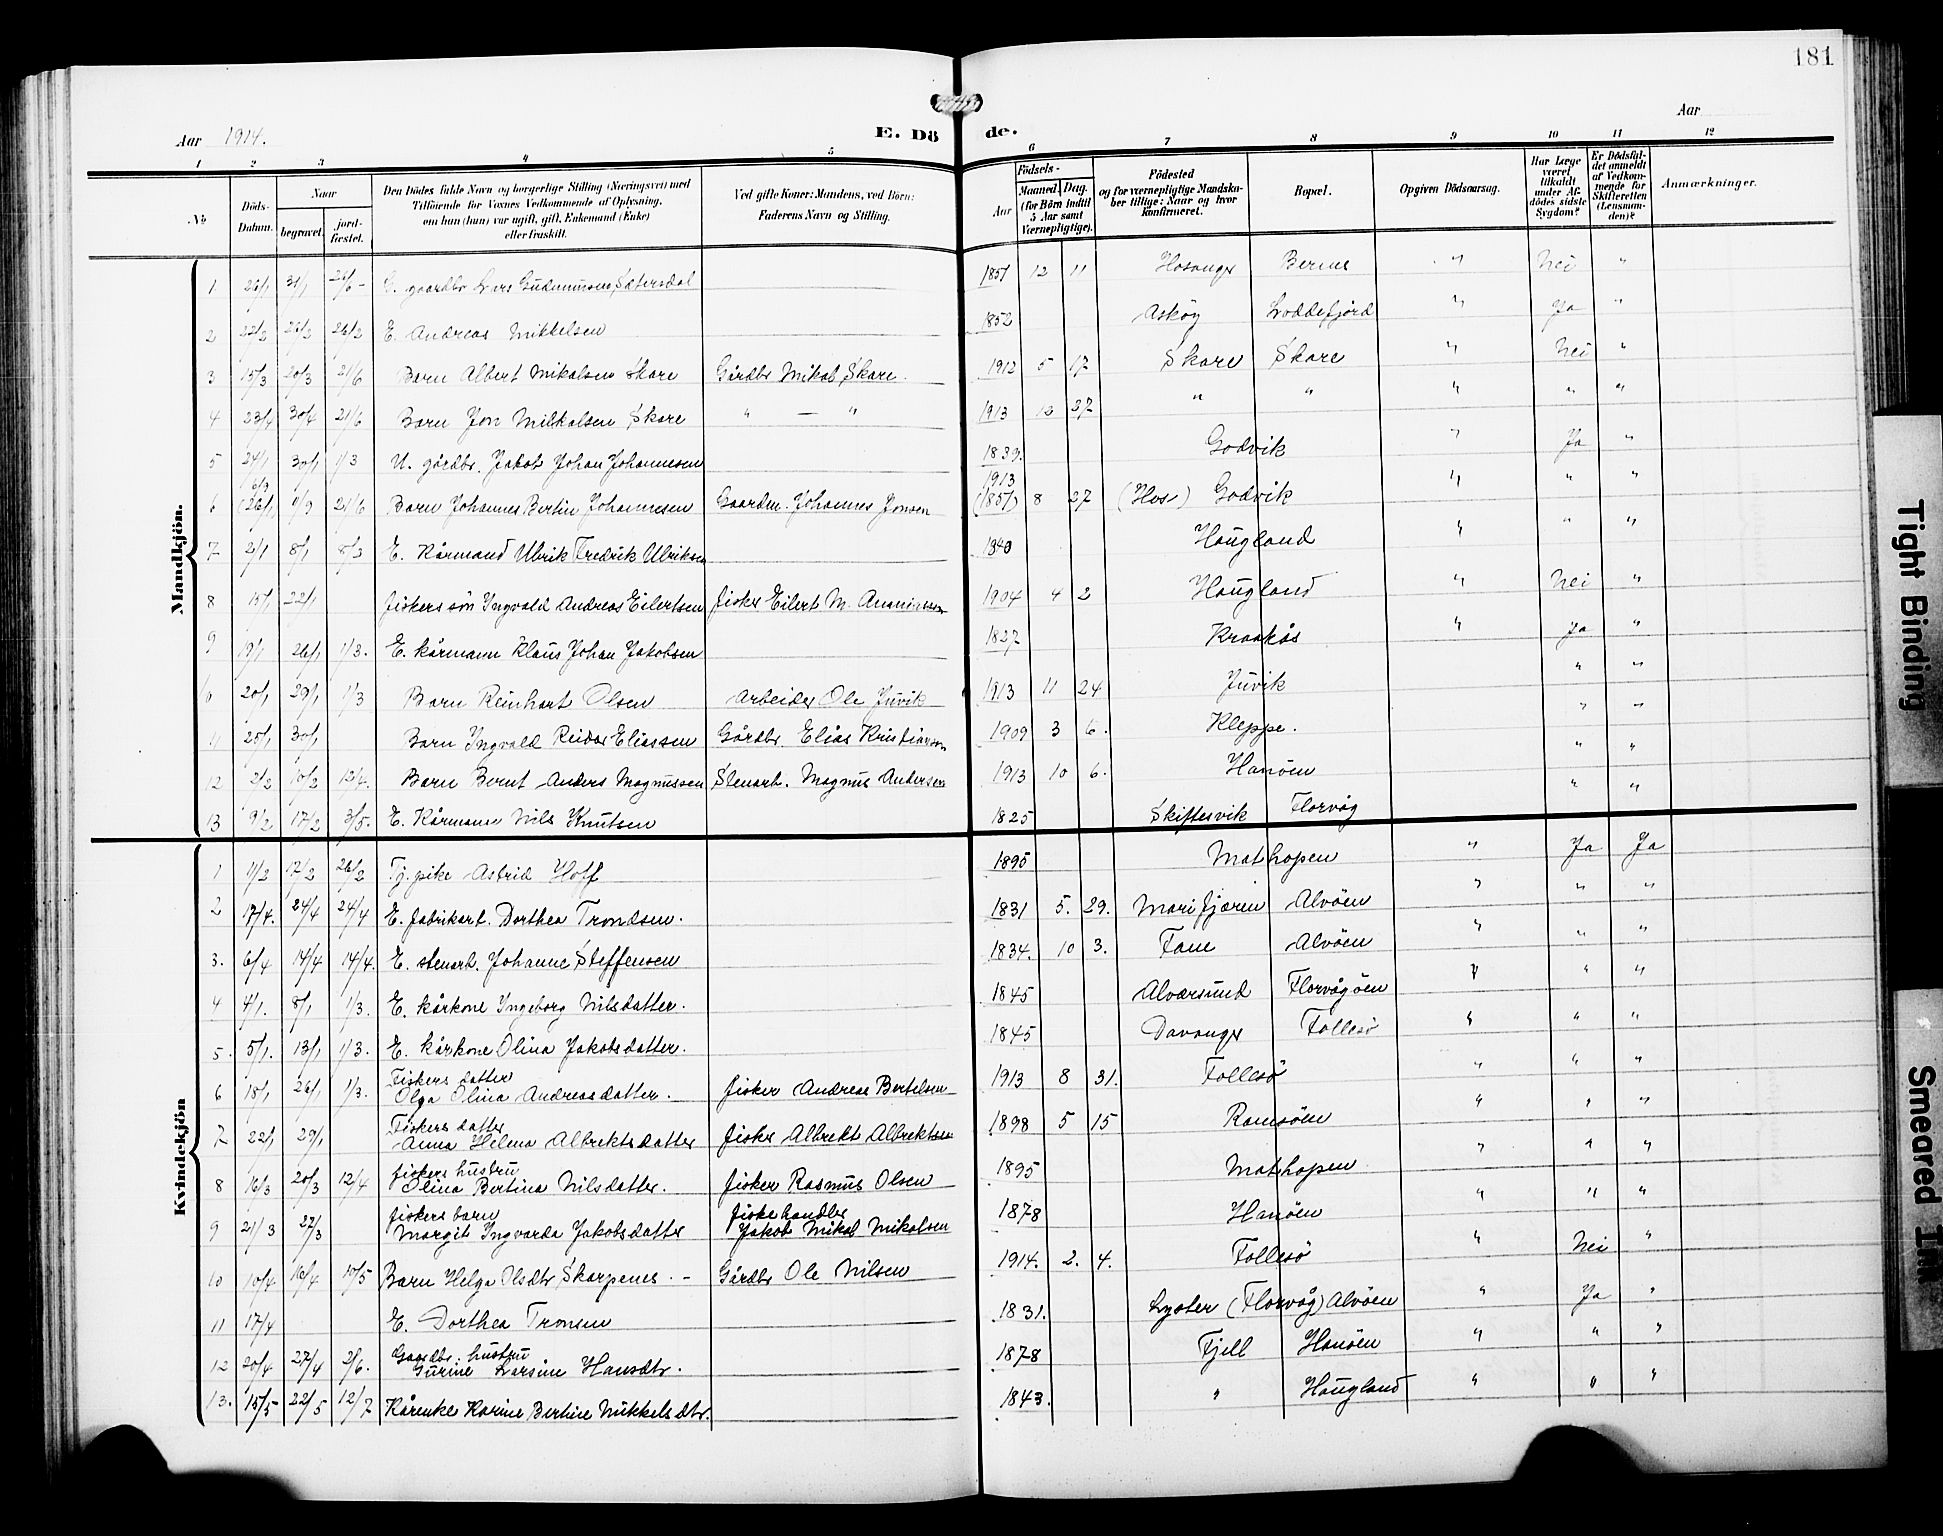 181
Aar 1914.
E. Dö de.
Aar
1 2 3 4 5 6 7 8 9 10 11 12
№
Döds-Datum.
Naar
begravet.
jord-fæstet.
Den Dödes fulde Navn og borgerlige Stilling (Næringsvei) med Tilföiende for Voxnes Vedkommende af Oplysning, om han (hun) var ugift, gift, Enkemand (Enke) eller fraskilt.
Ved gifte Koner: Mandens, ved Börn: Faderens Navn og Stilling.
Födsels-
Aar
Maaned. Dag. (for Börn indtil 5 Aar samt Værnepligtige).
Födested og for værnepligtige Mandskaber tillige: Naar og hvor konfirmeret.
Bopæl.
Opgiven Dödsaarsag.
Har Læge været tilkaldt under Afdödes sidste Sygdom?
Er Dödsfaldet anmeldt af Vedkommende for Skifteretten (Lensmanden)?
Anmærkninger.
Mandkjön.
1 26/1 31/1 Lars Gudmunsen Sætersdal 1851 12 11 Hosanger Nei "
2 22/2 26/2 26/2 E. Andreas Mikkelsen 1852 Askøy Loddefjord " Ja "
3 15/3 20/3 21/6 Barn Albert Mikalsen Skare Gårdbr Mikal Skare. 1912 5 17 Skare Skare " Nei "
4 23/4 30/4 21/6 Barn Jon Mikkalsen Skare " — " 1913 12 27 " " " " "
5 24/1 30/1 1/3 U. gårdbr. Jakob Johan Johannesen 1839. Godvik " Ja "
6 6/9 (26/1 11/9 21/6 Barn Johannes Bertin Johannesen Gaardm. Johannes Jonsen 1913 (1851) 8 27 (Hos) Godvik " " "
7 2/1 8/1 8/3 E. Kårmand Ulrik Fredrik Ulriksen 1840 Haugland " " "
8 15/1 22/1 Fiskers søn Ingvald Andreas Eilertsen Fisker Eilert M. 1904 4 2 Haugland " Nei "
9 19/1 26/1 1/3. E. kårmann Klaus Johan Jakobsen 1827 Kraakås " Ja "
10 20/1 29/1 1/3 Barn Reinhart Olsen Arbeider Ole Juvik 1913 11 24 Juvik " "
11 25/1 30/1 Barn Ingvald Reidar Eliassen Gårdbr. Elias Kristiansen 1909 3 6. Kleppe. " "
12 2/2 10/2 12/4. Barn Bernt Anders Magnussen Stenarb. Magnus Andersen 1913 10 6. Hanöen " "
13 9/2 17/2 3/5. E. Kårmann Nils Knutsen 1825 Skiftesvik Florvåg " "
Kvindekjön
1 11/2 17/2 26/2 Tj. pike Astrid Hoff 1895 Mathopen " Ja Ja
2 17/4. 24/4 24/4 E. fabrikarb. Dorthea Trondsen. 1831 5. 29. Marifjæren Alvöen " " "
3. 6/4 14/4 14/4. E. stenarb. Johanne Steffensen 1834. 10 3. Fane Alvöen " " "
4 4/1. 8/1 1/3. E. kårkone Ingeborg Nilsdatter. 1845 Alversund Florvågöen " " "
5. 5/1. 13/1 1/3. E. kårkone Olina Jakobsdatter. 1845 Davanger Follesö " " "
6 18/1 26/1 1/3. Fiskers datter Olga Olina Andreasdatter. Fisker Andreas Bertelsen 1913 8 31. Follesö " " "
7 22/1 29/1 Fiskers datter Anna Helena Albrektsdatter Fisker Albrekt Albrektsen 1898 5 15 Ramsöen " " "
8 16/3 20/3 12/4 Fiskers hustru Olina Bertina Nilsdatter. Fisker Rasmus Olsen 1895 Mathopen " " "
9 21/3 27/3 Fiskers barn Margit Ingvarda Jakobsdatter Fiskehandler Jakob Mikal Mikalsen 1878 Hanöen " " "
10 10/4 16/4 10/5 Barn Helga Olsdtr Skarpenes. - Gårdbr Ole Nilsen 1914. 2. 4. Follesö " Nei "
11 17/4 E. Dorthea Tronsen 1831. Lyster (Florvåg) Alvöen " Ja "
12 20/4 27/4 2/6. Gaardbr. hustru Gurine Larsine Hansdtr. 1878 Fjell Hanöen " " "
13. 15/5 22/5 12/7 Kårenke Karine Bertine Mikkelsdtr. 1843. " Haugland " " "
Tight Binding
Smeared Ink